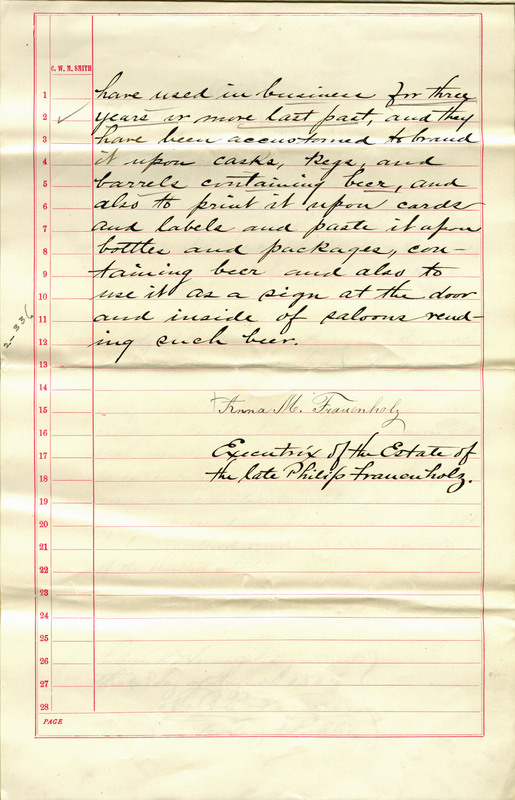 C. W. M. SMITH
1 have used in business for three
2 years or more last past, and they
3 have been accustomed to brand
4 it upon casks, kegs, and
5 barrels containing beer, and
6 also to print it upon cards
7 and labels and paste it upon
8 bottles and packages, con-
9 taining beer and also to
10 use it as a sign at the door
11 and inside of saloons vend-
12 ing such beer.
13
14
15 Anna M. Frauenholz
16
17 Executrix of the Estate of
18 the late Philip Frauenholz.
19
20
21
22
23
24
25
26
27
28
PAGE
2-336